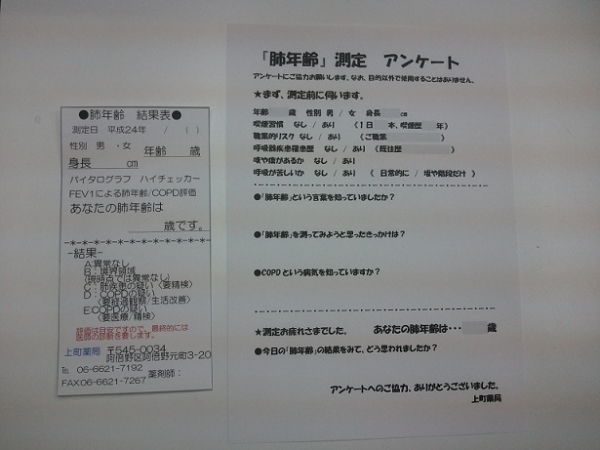 ●肺年齢 結果表●
測定日 平成24年 / ( )
性別 男 ・女 年齢 歳
身長 ㎝
バイタログラフ ハイチェッカー
FEV1による肺年齢/COPD評価
あなたの肺年齢は
歳です。
-*-*-*-*-*-*-*-*-*-*-*-
-結果-
A:異常なし
B:境界領域
(現時点では異常なし)
C:肺疾患の疑い(要精検)
D:COPDの疑い
(要経過観察/生活改善)
E:COPDの疑い
(要医療/精検)
評価は目安ですので、最終的には
医師の診断を要します。
上町薬局 〒545-0034
阿倍野区阿倍野元町3-20
℡ 06-6621-7192
FAX06-6621-7267 薬剤師:
「肺年齢」測定 アンケート
アンケートにご協力お願いします。なお、目的以外で使用することはありません。
★まず、測定前に伺います。
年齢 歳 性別 男 / 女 身長 ㎝
喫煙習慣 なし / あり (1日 本、喫煙歴 年)
職業的リスク なし / あり (ご職業 )
呼吸器疾患罹患歴 なし / あり (既往歴 )
咳や痰があるか なし / あり
呼吸が苦しいか なし / あり ( 日常的に / 坂や階段だけ )
●「肺年齢」という言葉を知っていましたか?
●「肺年齢」を測ってみようと思ったきっかけは?
●COPDという病気を知っていますか?
★測定お疲れさまでした。 あなたの肺年齢は・・・ 歳
●今日の「肺年齢」の結果をみて、どう思われましたか?
アンケートへのご協力、ありがとうございました。
上町薬局